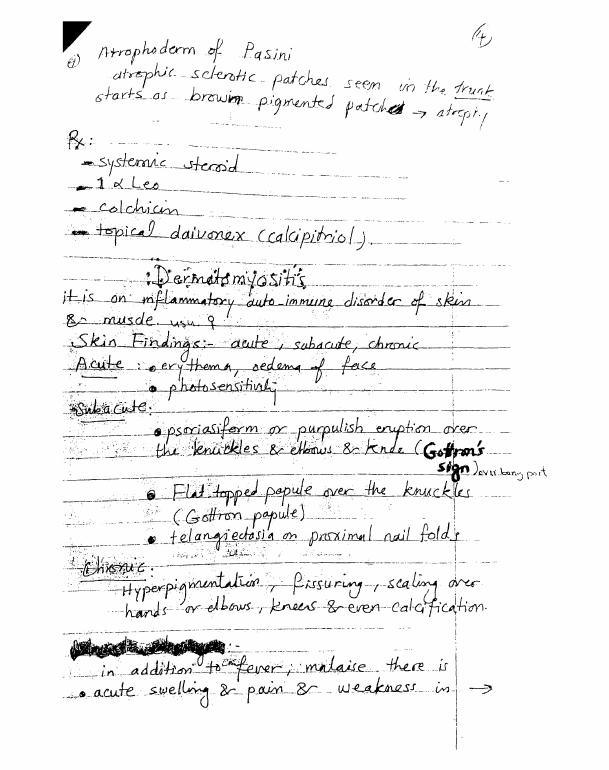 (4)
e) Atrophoderm of Pasini
atrophic sclerotic patches seen in the trunk
starts as brown pigmented patches → atrophy
Rx:
- systemic steroid
- 1 α Leo
- colchicin
- topical daivonex (calcipitriol).
: Dermatomyositis
it is on inflammatory auto-immune disorder of skin
& muscle. usu ♀
Skin Findings:- acute, subacute, chronic
Acute : • erythema, oedema of face
• photosensitivity
Subacute:
• psoriasiform or purpulish eruption over
the knuckles & elbows & knee (Gottron's
sign) over bony part
• Flat topped papule over the knuckles
(Gottron papule)
• telangiectasia on proximal nail folds
Chronic:
Hyperpigmentation, fissuring, scaling over
hands or elbows, knees & even calcification.
in addition to fever, malaise there is
• acute swelling & pain & weakness in →